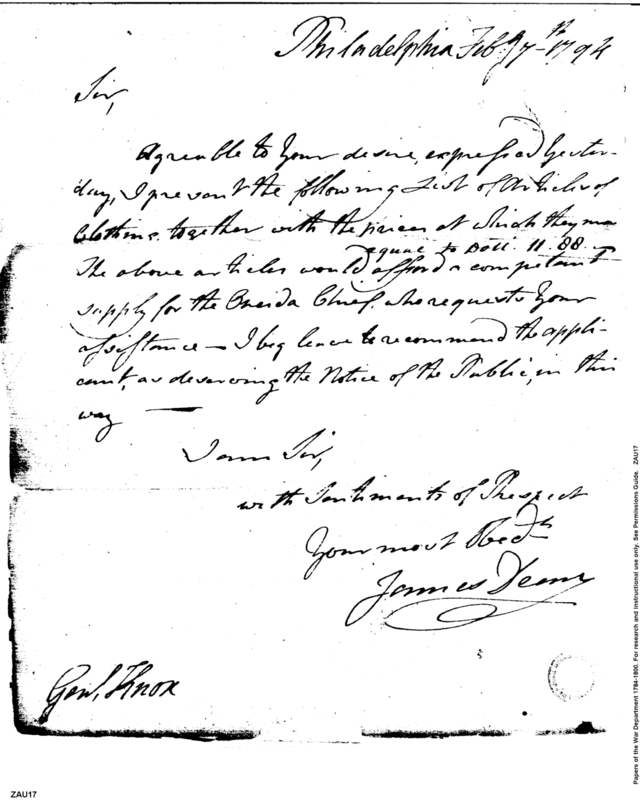 Philadelphia Feby. 7th 1794
Sir,
Agreable to Your desire, expressed Yester-
day, I present the following List of Articles of
Clothing, together with the prices at which they may
equal to Doll. 11.88
The above articles would afford a competant
supply for the Oneida Chief, who requests Your
assistance — I beg leave to recommend the appli-
cant, as deserving the Notice of the Public, in this
way —
I am Sir,
with Sentiments of Respect
Your most Obedt
James Dean
Genl. Knox
ZAU17
Papers of the War Department 1784-1800. For research and instructional use only. See Permissions Guide. ZAU17